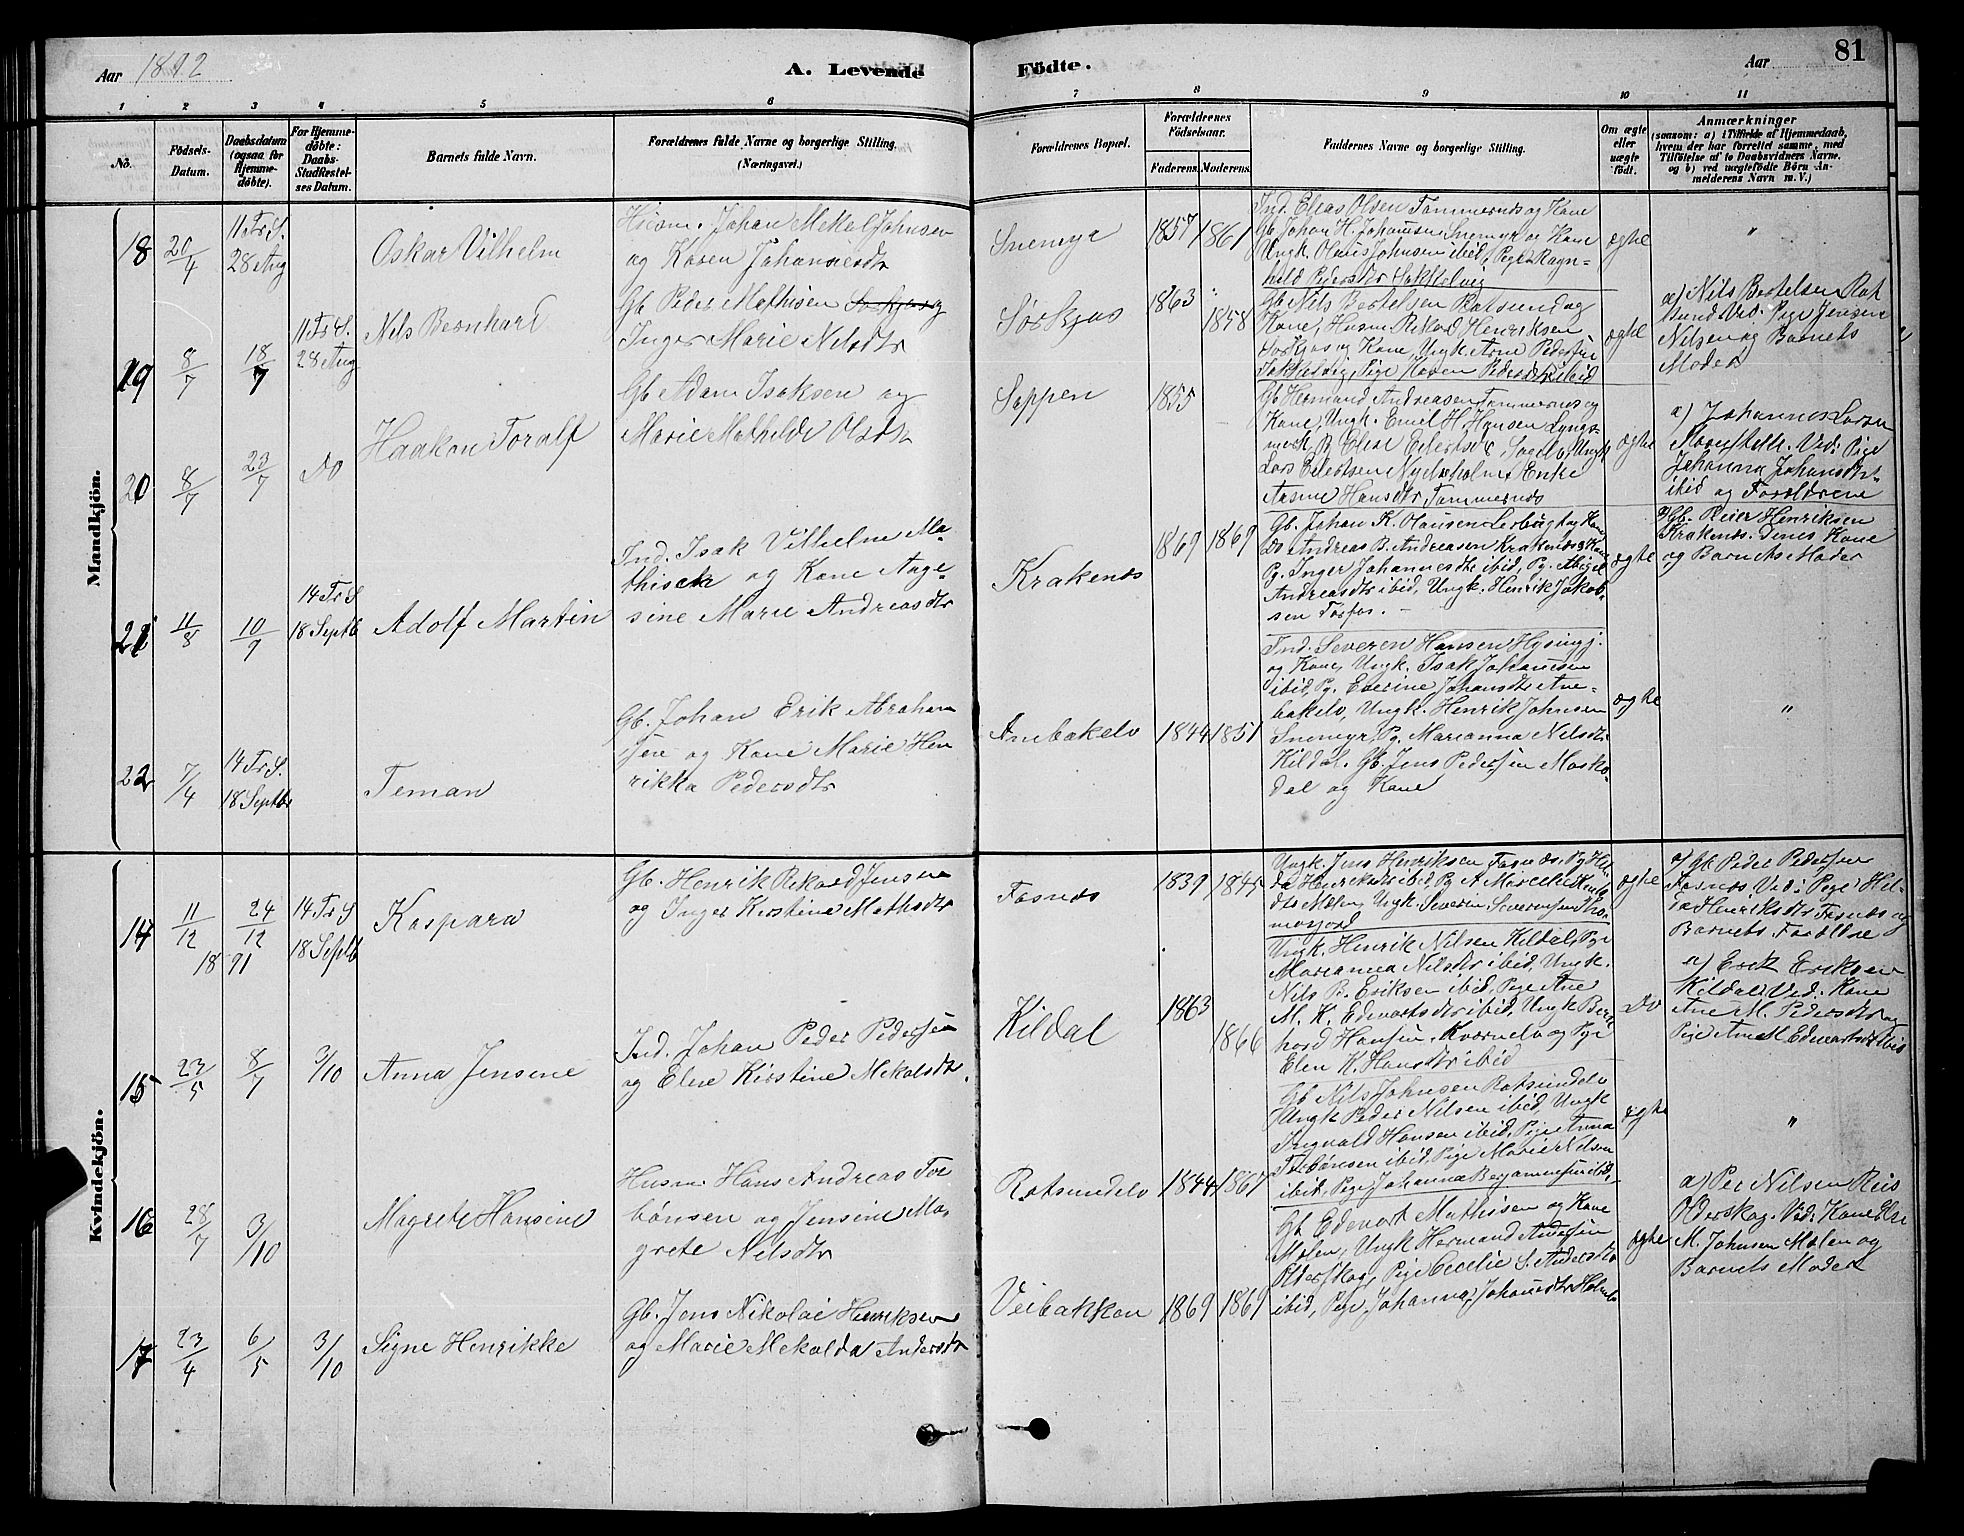 Aar 1892
A. Levende
Födte.
Aar
81
1 2 3 4 5 6 7 8 9 10 11
No.
Födsels-
Datum.
Daabsdatum
(ogsaa for
Hjemme-
döbte).
For Hjemme-
döbte:
Daabs-
Stadfæstel-
ses Datum.
Barnets fulde Navn.
Forældrenes fulde Navne og borgerlige Stilling.
(Næringsvei.)
Forældrenes Bopæl.
Forældrenes
Födselsaar.
Faderens. Moderens.
Faddernes Navne og borgerlige Stilling.
Om ægte
eller
uægte
født.
Anmærkninger
(saasom: a) i Tilfælde af Hjemmedaab,
hvem der har forrettet samme, med
Tilföielse af to Daabsvidners Navne,
og b) ved uægtefödte Börn An-
melderens Navn m. V.)
Mandkjön.
18
20/4
11 Tr. S.
28 Aug
Oskar Vilhelm
Husm. Johan Mekel Johnsen
og Karen Johannesdtr
Snemyr
1857 1861
Ind. Elias Olsen Tammernes og Kone
Gb. Johan H. Johannsen Snemyr og Kone
Ungk. Olaus Johnsen ibid, Pige Ragn-
hild Pedersdtr Sakkelvig
ægte
"
19
8/7
18/7
11 Tr. S.
28 Aug
Nils Bernhard
Gb. Peder Mathisen Sørkjos og
Inger Marie Nilsdtr
Sørkjos
1863 1858
Gb. Nils Bertelsen Rotsund og
Kone, Husm. Rekard Henriksen
Sørkjos og Kone, Ungk. Arne Pedersen
Sakkelvig, Pige Karen Pedersdtr ibid
ægte
a) Nils Bertelsen Rot
sund Ved: Pige Jensen
Nilsen og Barnets
Moder
20
8/7
23/7
Do
Haakon Toralf
Gb. Adam Isaksen og
Marie Mathilde Olsdtr
Soppen
1855
Gb. Hermand Andreasen Tammernes og
Kone, Ungk. Emil H. Hansen Lyngs-
Lars Eilertsen Nyelvholm Enke
Hansdtr Tammernes
ægte
a) Johannes Larsen
Ved: Pige
Johanna Johansdtr
ibid og Forældrene
21
11/8
10/9
14 Tr S
18 Septb
Adolf Martin
Ind. Isak Vilhelm Ma-
thisen og Kone Ange-
sine Marie Andreasdtr
Krakenes
1869 1869
Gb. Johan K. Hansen Lerbugt og Kone
Do Andreas B. Andreasen Krakenes og Kone
Pg. Inger Johannesdtr ibid, Pg. Abigel
Andreasdtr ibid, Ungk. Henrik Jakob-
sen Forfos. –
ægte
a) Gb. Peier Henriksen
Krakenes. Denes Kone
og Barnets Moder
22
7/4
14 Tr. S.
18 Septbr
Teman
Gb. Johan Erik Abraham
sen og Kone Marie Hen
rikka Pedersdtr
Anebakelv
1844 1851
Ind. Severen Hansen Hysingj.
og Kone, Ungk. Isak Johansen
ibid, Pg. Everine Johansdtr Ane-
bakelv, Ungk. Henrik Johnsen
Snemyr, Pg. Marianna Nilsdtr
Kildal. Gb. Jens Pedersen Mosko-
dal og Kone
ægte
"
Kvindekjön.
14
11/12
24/12
18 91
14 Tr S
18 Septb
Kaspara
Gb. Henrik Rekard Jensen
og Inger Kirstine Mathsdtr
Fosnes
1839 1845
Ungk. Jens Henriksen Fosnes, Pg Hel-
da Henriksdtr ibid, Pg A Marcelie Henrik
dtr Mælen, Ungk. Severin Severinsen Tho-
masjord
ægte
a) Gb. Peder Pedersen
Fosnes Ved: Pige Hel-
da Henriksdtr Fosnes og
Barnets Forældre
15
23/5
8/7
3/10
Anna Jensine
Ind. Johan Peder Pedersen
og Elen Kirstine Mekalsdtr.
Kildal
1863 1866
Ungk. Henrik Nilsen Kildal, Pige
Marianna Nilsdtr ibid, Ungk.
Nils B. Eriksen ibid, Pige Ane
M. K. Edevartsdtr ibid, Ungk Bern-
hard Hansen Kvænelv og Pige
Elen K. Hansdtr ibid
Do
a) Erik Eriksen
Kildal, Ved: Kone
Ane M. Pedersdtr og
Pige Ane M. Edevartsdtr ibid
16
28/7
3/10
Magrete Hansine
Husm. Hans Andreas Tor
bönsen og Jensine Ma-
grete Nilsdtr
Rotsundelv
1844 1867
Gb Nils Johnsen Rotsundelv
Ungk Peder Nilsen ibid, Ungk
Ingvald Hansen ibid, Pige Anna
Torbönsen ibid, Pige Marie Nilsen
ibid, Pige Johanna Benjaminsen ibid,
ægte
"
17
23/4
6/5
3/10
Signe Henrikke
Gb. Jens Nikolai Henriksen
og Marie Mekalda Andersdtr
Veibakken
1869 1869
Gb Edevart Mathisen og Kone
Molen, Ungk Hermand Andersen
Olderskog, Pige Cecilie S. Andersdtr
ibid, Pige Johanna Johansdtr
ægte
a) Per Nilsen Reis
Olderskog. Ved: Kone Else
M. Johnsen Molen og
Barnets Moder